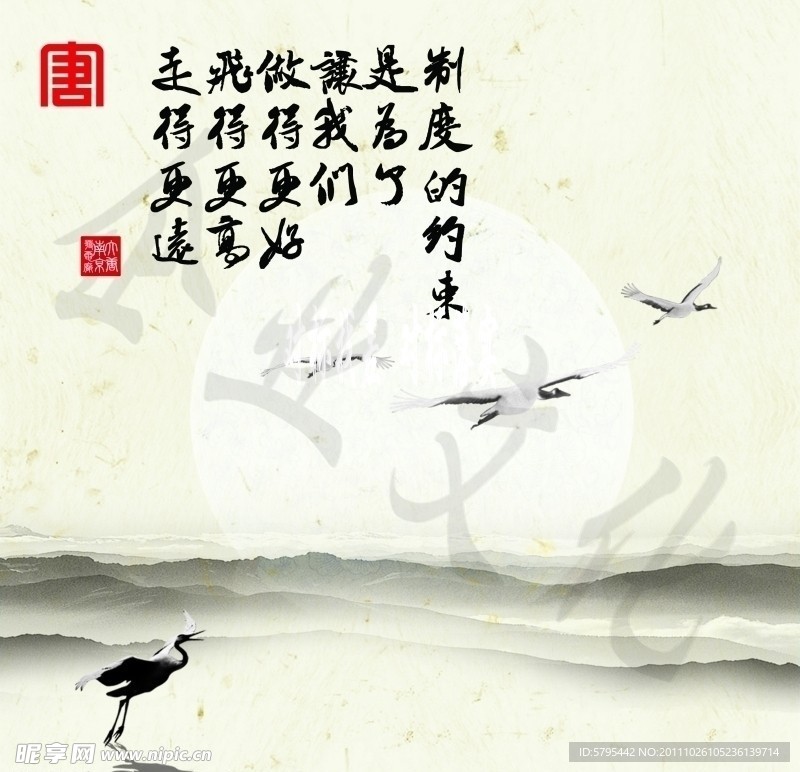 制度的约束
是為了
讓我們
做得更好
飛得高更高
走得更遠
唐
大唐
南京
昵享网 www.nipic.cn
ID:5795442 NO:20111026105236139714